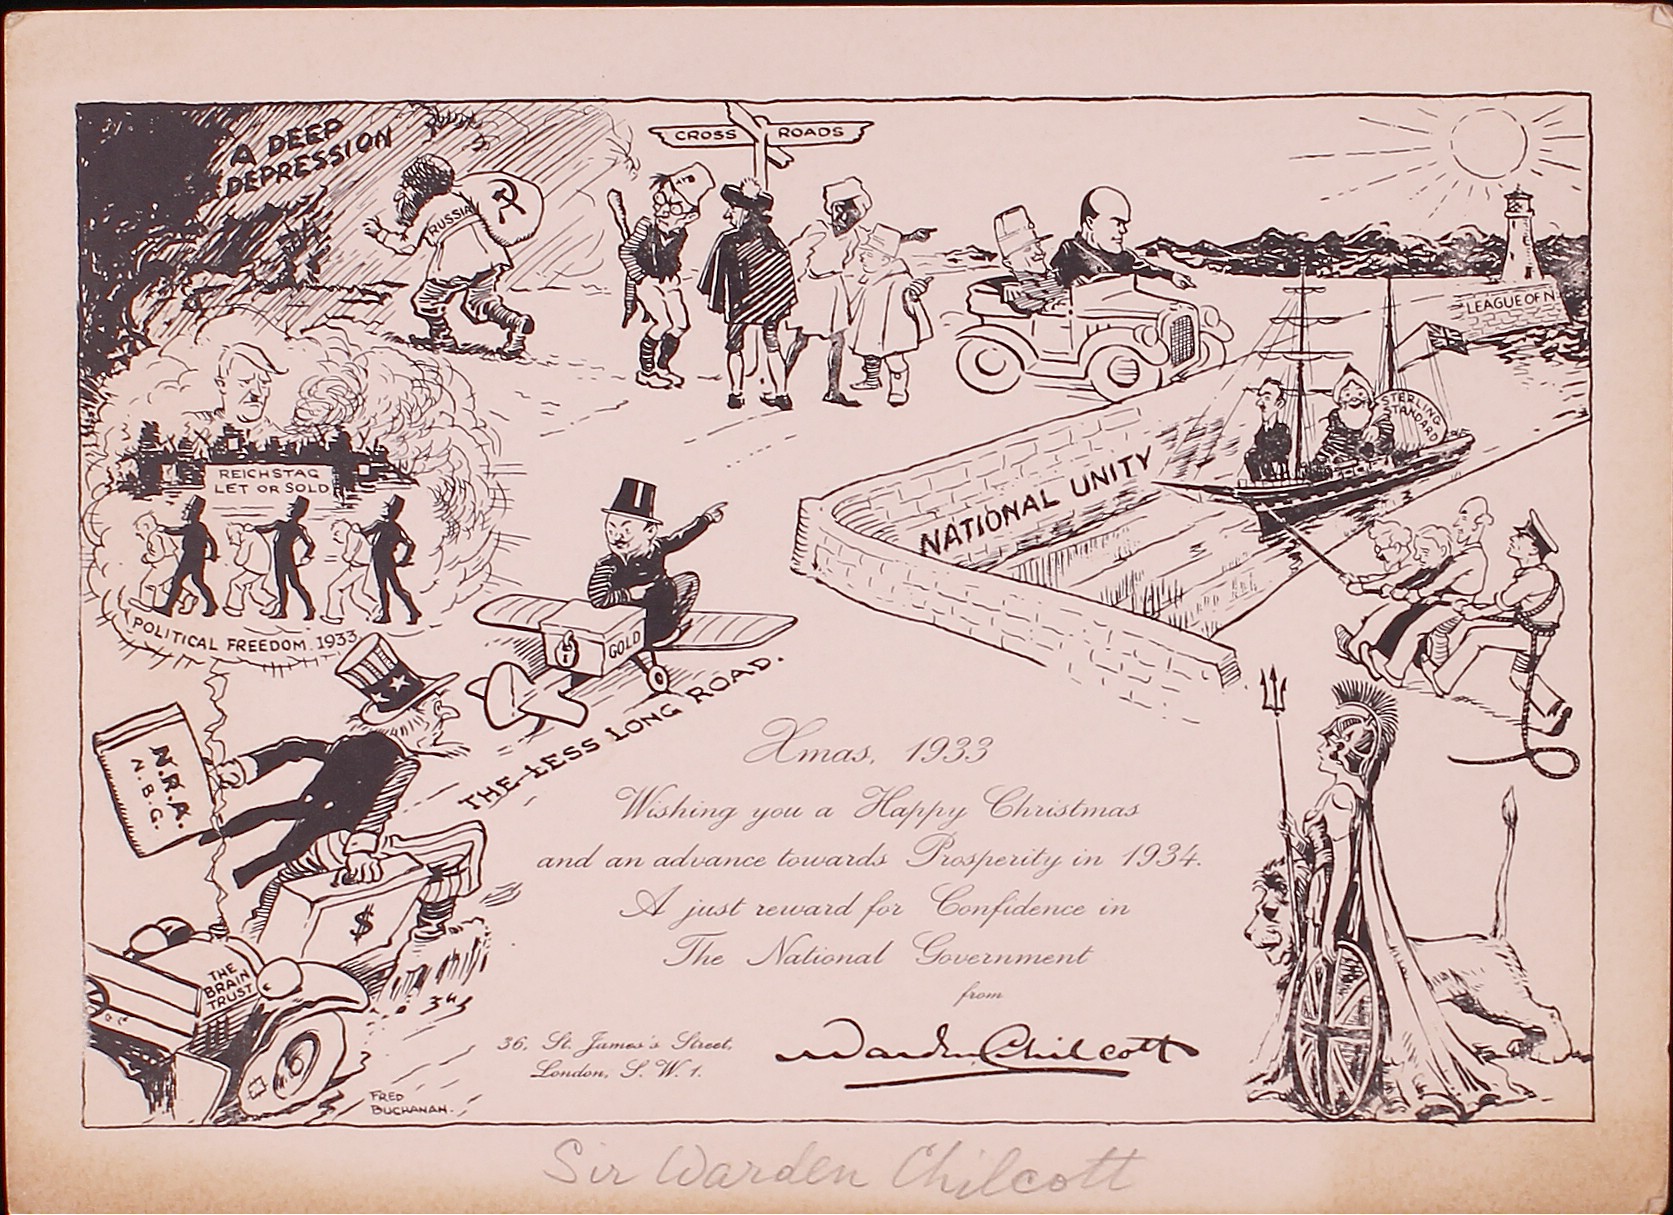 A DEEP
DEPRESSION
RUSSIA
CROSS ROADS
LEAGUE OF N
STERLING
STANDARD
NATIONAL UNITY
REICHSTAG
LET OR SOLD
POLITICAL FREEDOM. 1933
GOLD
THE LESS LONG ROAD.
N.R.A.
N.B.G.
$
THE
BRAIN
TRUST
Xmas, 1933
Wishing you a Happy Christmas
and an advance towards Prosperity in 1934.
A just reward for Confidence in
The National Government
from
36, St. James's Street,
London, S. W. 1.
Warden Chilcott
FRED
BUCHANAN.
Sir Warden Chilcott